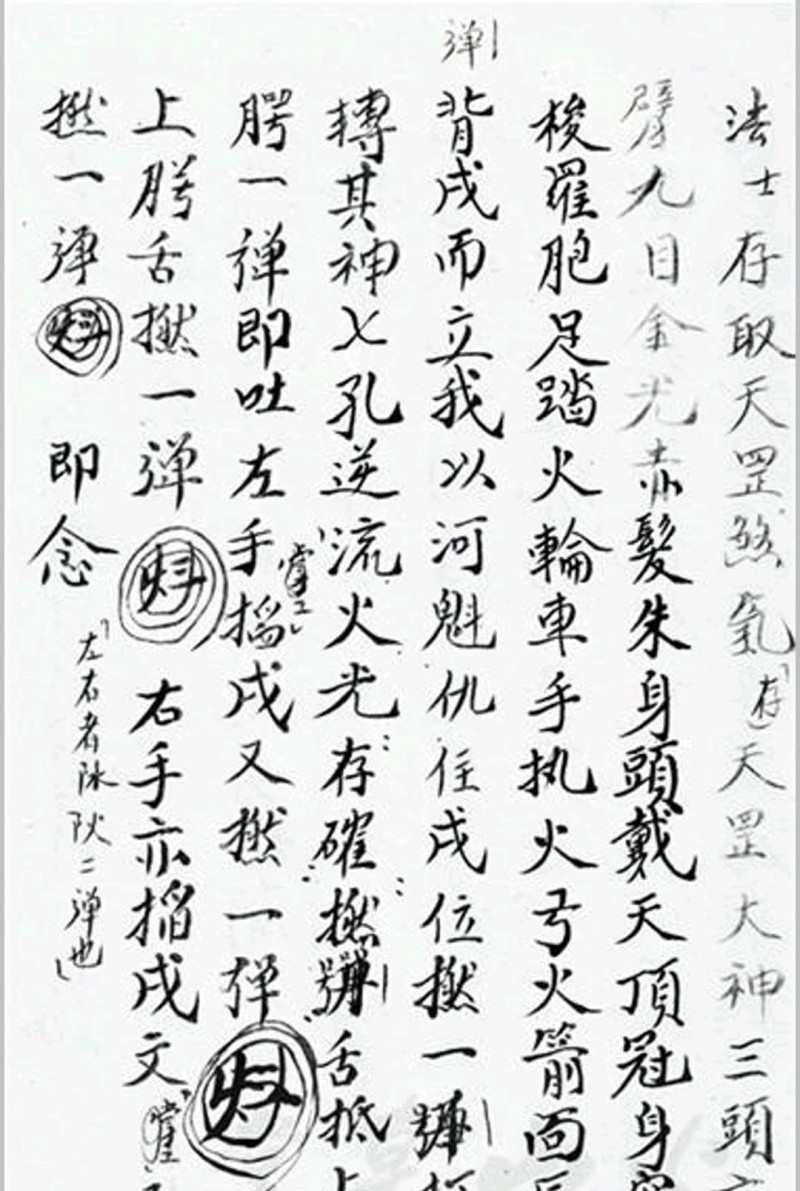 法士存取天罡煞氣「存」天罡大神三頭
臂九目金光赤髮朱身頭戴天頂冠身穿
梭羅胞足踏火輪車手执火弓火箭面
弹
背戌而立我以河魁仇住戌位撚一
轉其神七孔逆流火光存確撚舌抵上
腭一弹即吐左手搯戌又撚一弹
掌上
上腭舌撚一弹 右手亦掐戌文
掌
撚一弹 即念
「左右者 二弹也」